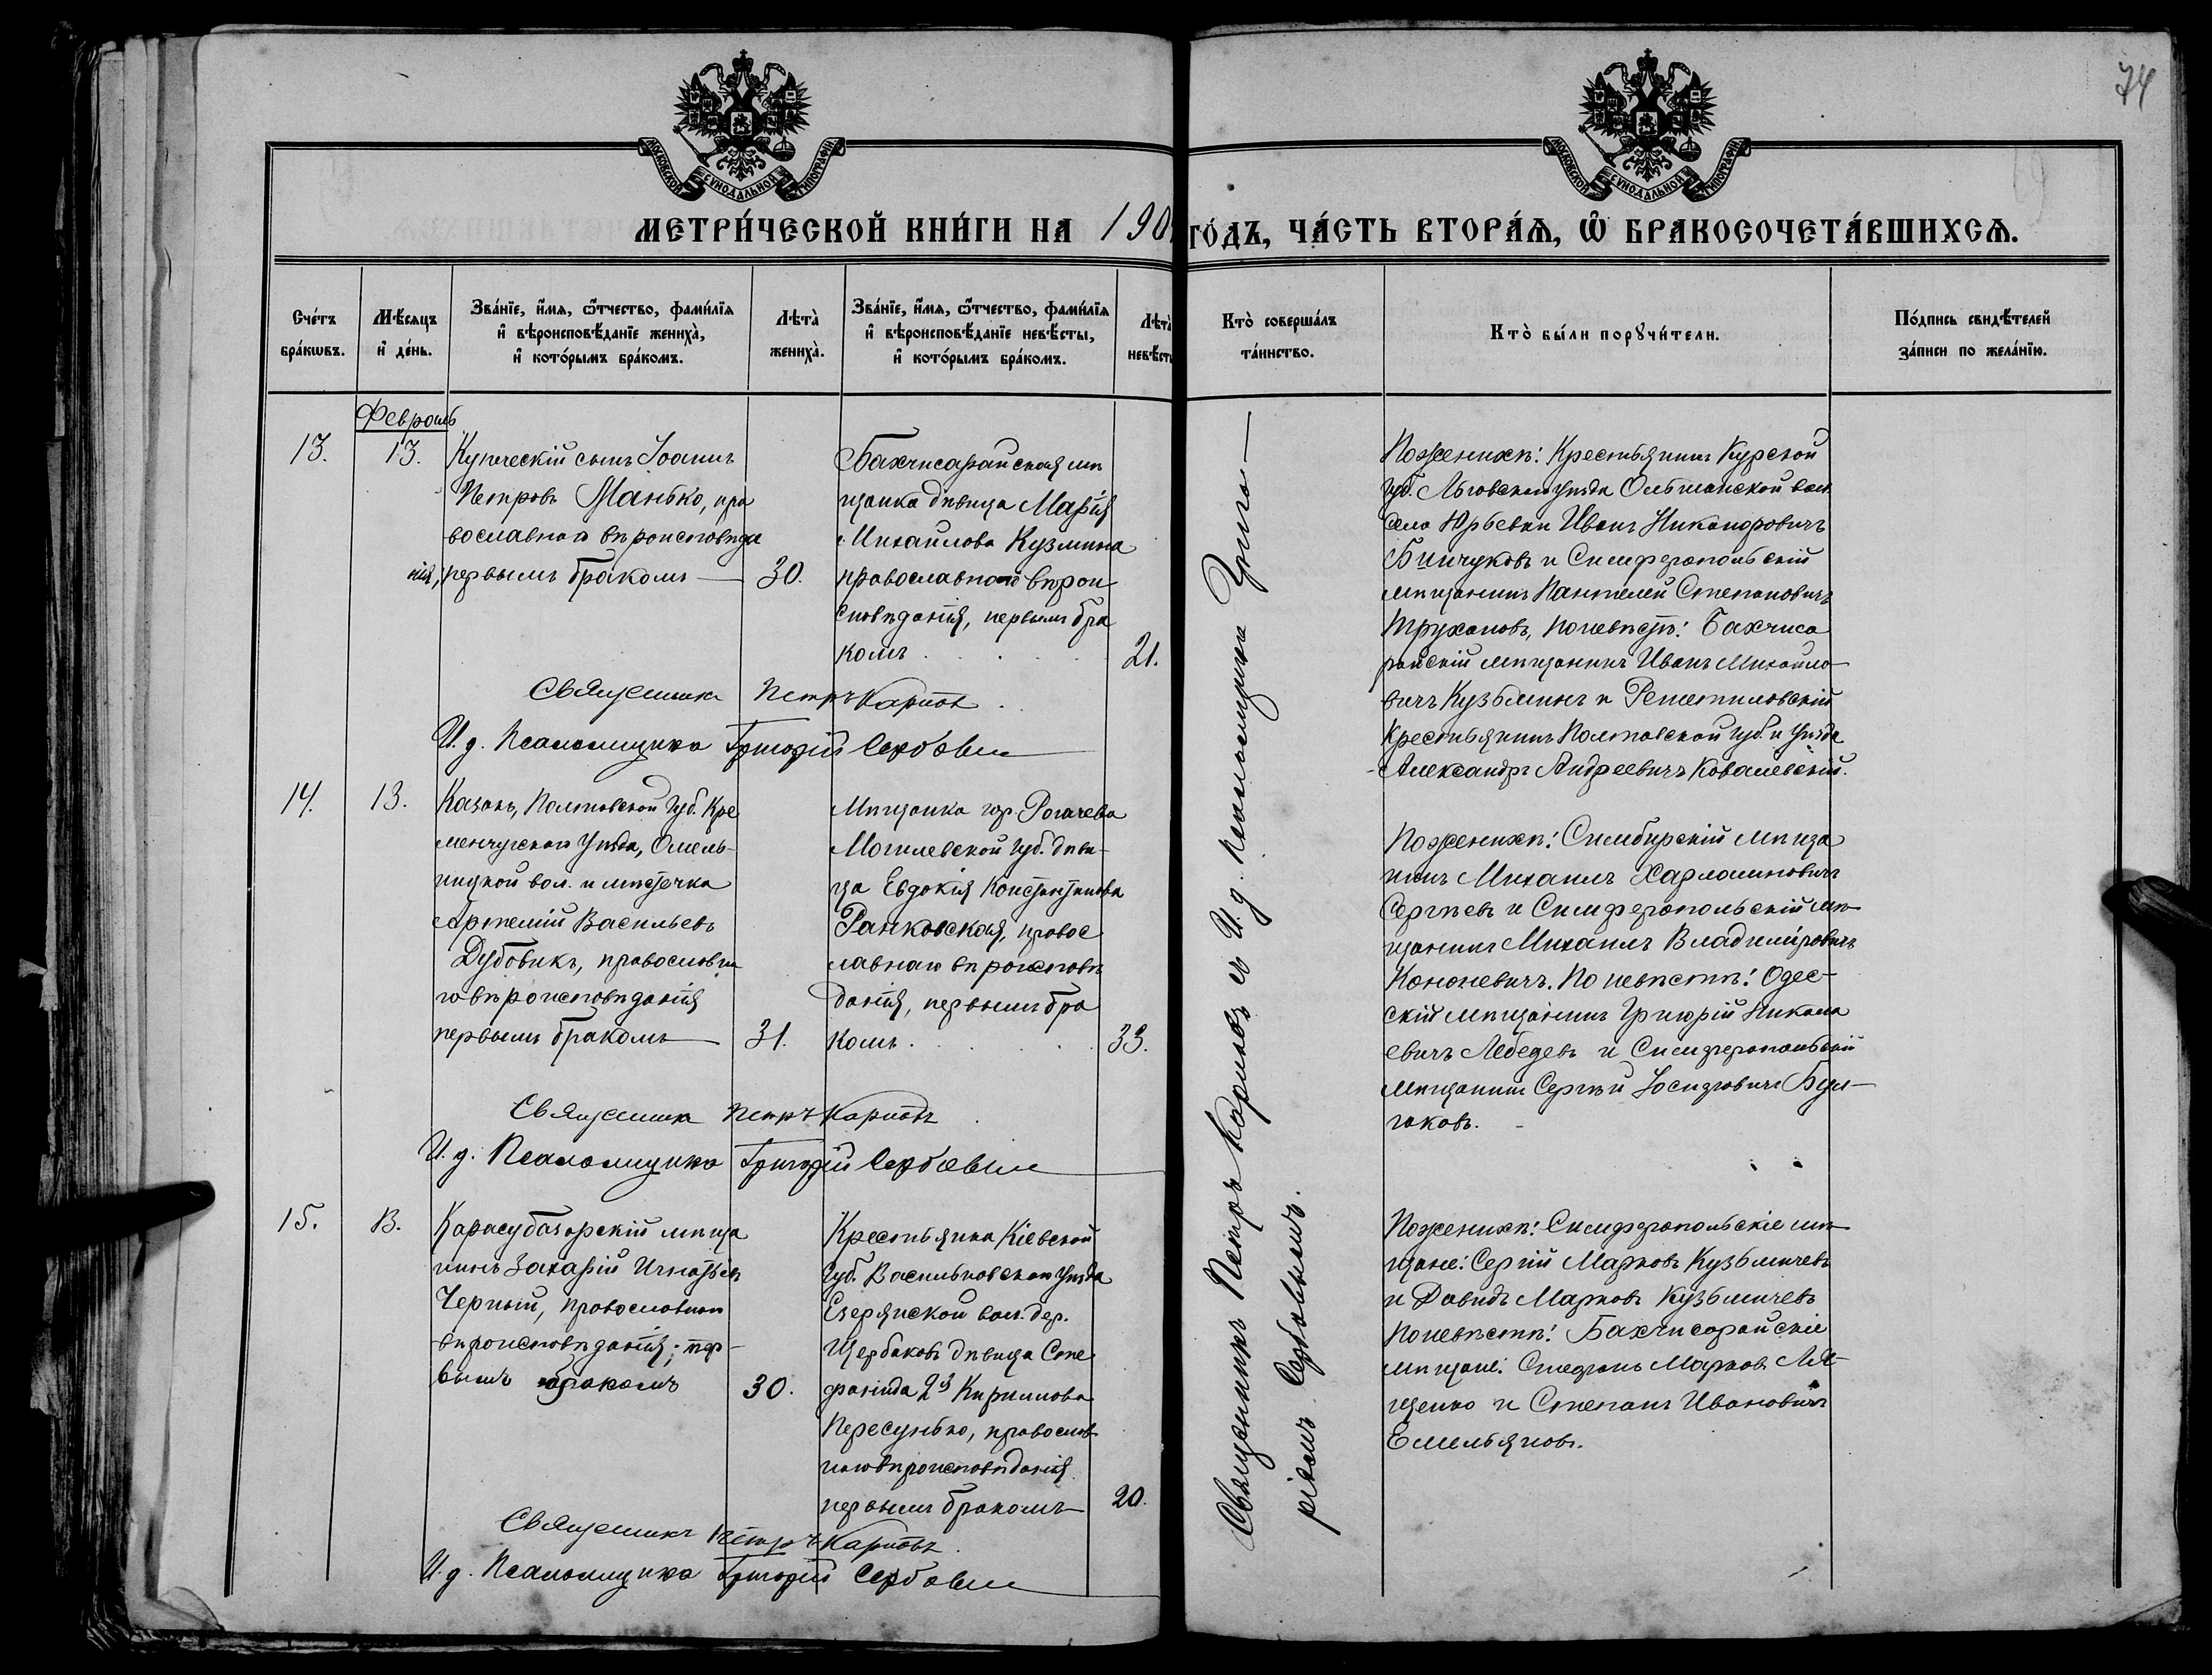 74
МОСКОВСКОЙ СѴНОДАЛЬНОЙ ТИПОГРАФІИ
МОСКОВСКОЙ СѴНОДАЛЬНОЙ ТИПОГРАФІИ
МЕТРИ́ЧЕСКОЙ КНИ́ГИ НА 190
ГО́ДЪ, ЧА́СТЬ ВТОРА́Ѧ, Ѽ БРАКОСОЧЕТА́ВШИХСѦ.
Сче́тъ
бра́кѡвъ.
Мѣ́сѧцъ
и҆ де́нь.
Зва́нїе, и҆́мѧ, ѻ҆́тчество, фами́лїѧ
и҆ вѣроисповѣ́данїе женихà,
и҆ кото́рымъ бра́комъ.
Лѣтà
женихà.
Зва́нїе, и҆́мѧ, ѻ҆́тчество, фами́лїѧ
и҆ вѣроисповѣ́данїе невѣ́сты,
и҆ кото́рымъ бра́комъ.
Лѣтà
невѣ́ст
Ктò соверша́лъ
та́инство.
Ктò бы́ли порꙋчи́тели.
По́дпись свидѣ́телей
за́писи по жела́нїю.
Февраль
13.
13.
Купеческій сынъ Іоаннъ
Петровъ Манько, пра
вославнаго вѣроисповѣда
нія, первымъ бракомъ
30.
Бахчисарайская мѣ
щанка дѣвица Марія
Михаилова Кузмина
православнаго вѣрои
сповѣданія, первымъ бра
комъ
21.
Священникъ Петръ Карповъ
И. д. Псаломщика Григорій Сербовъ
Поженихѣ: Крестьянинъ Курской
губ. Льговскаго уѣзда Ольшанской вол.
села Юрьевки Иванъ Никаноровичъ
Бинчуковъ и Симферопольскій
мѣщанинъ Пантелей Степановичъ
Трухановъ, Поневѣстѣ: Бахчиса
райскій мѣщанинъ Иванъ Михайло
вичъ Кузьминъ и Решетиловскій
Крестьянинъ Полтавской губ. и уѣзда
Александръ Андреевичъ Ковалевскій.
14.
13.
Казакъ, Полтавской Губ. Кре
менчугскаго Уѣзда, Омель-
ницкой вол. и мѣстечка
Артемій Васильевъ
Дубовикъ, православна
го вѣроисповѣданія
первымъ бракомъ
31.
Мѣщанка гор. Рогачева
Могилевской губ. дѣви-
ца Евдокія Константинова
Ранковская, правос
лавнаго вѣроисповѣ
данія, первымъ бра
комъ
33.
Священникъ Петръ Карповъ
И. д. Псаломщика Григорій Сербовъ
Поженихѣ: Симбирскій мѣща
нинъ Михаилъ Харлампіевичъ
Сергѣевъ и Симферопольскій мѣ-
щанинъ Михаилъ Владиміровичъ
Кононевичъ. По невѣстѣ: Одес-
скій мѣщанинъ Григорій Никола
евичъ Лебедевъ и Симферопольскій
мѣщанинъ Сергѣй Іосифовичъ Бул-
гаковъ.
15.
13.
Карасубазарскій мѣща
нинъ Захарій Игнатьевъ
Черный, православнаго
вѣроисповѣданія; пер-
вымъ бракомъ
30.
Крестьянка Кіевской
Губ. Васильковскаго уѣзда
Езерянской вол. дер.
Щербаковъ дѣвица Сте
фанида 2я Кириллова
Пересунько, православ
наго вѣроисповѣданія
первымъ бракомъ
20.
Священникъ Петръ Карповъ
И. д. Псаломщика Григорій Сербовъ
Поженихѣ: Симферопольскіе мѣ-
щане: Сергій Марковъ Кузьмичевъ
и Давидъ Марковъ Кузьмичевъ
Поневѣстѣ: Бахчисарайскіе
мѣщане: Стефанъ Марковъ Ля-
щенко и Степанъ Ивановичъ
Емельяновъ.
Священникъ Петръ Карповъ съ И. д. Псаломщика Григо-
ріемъ Сербовымъ.